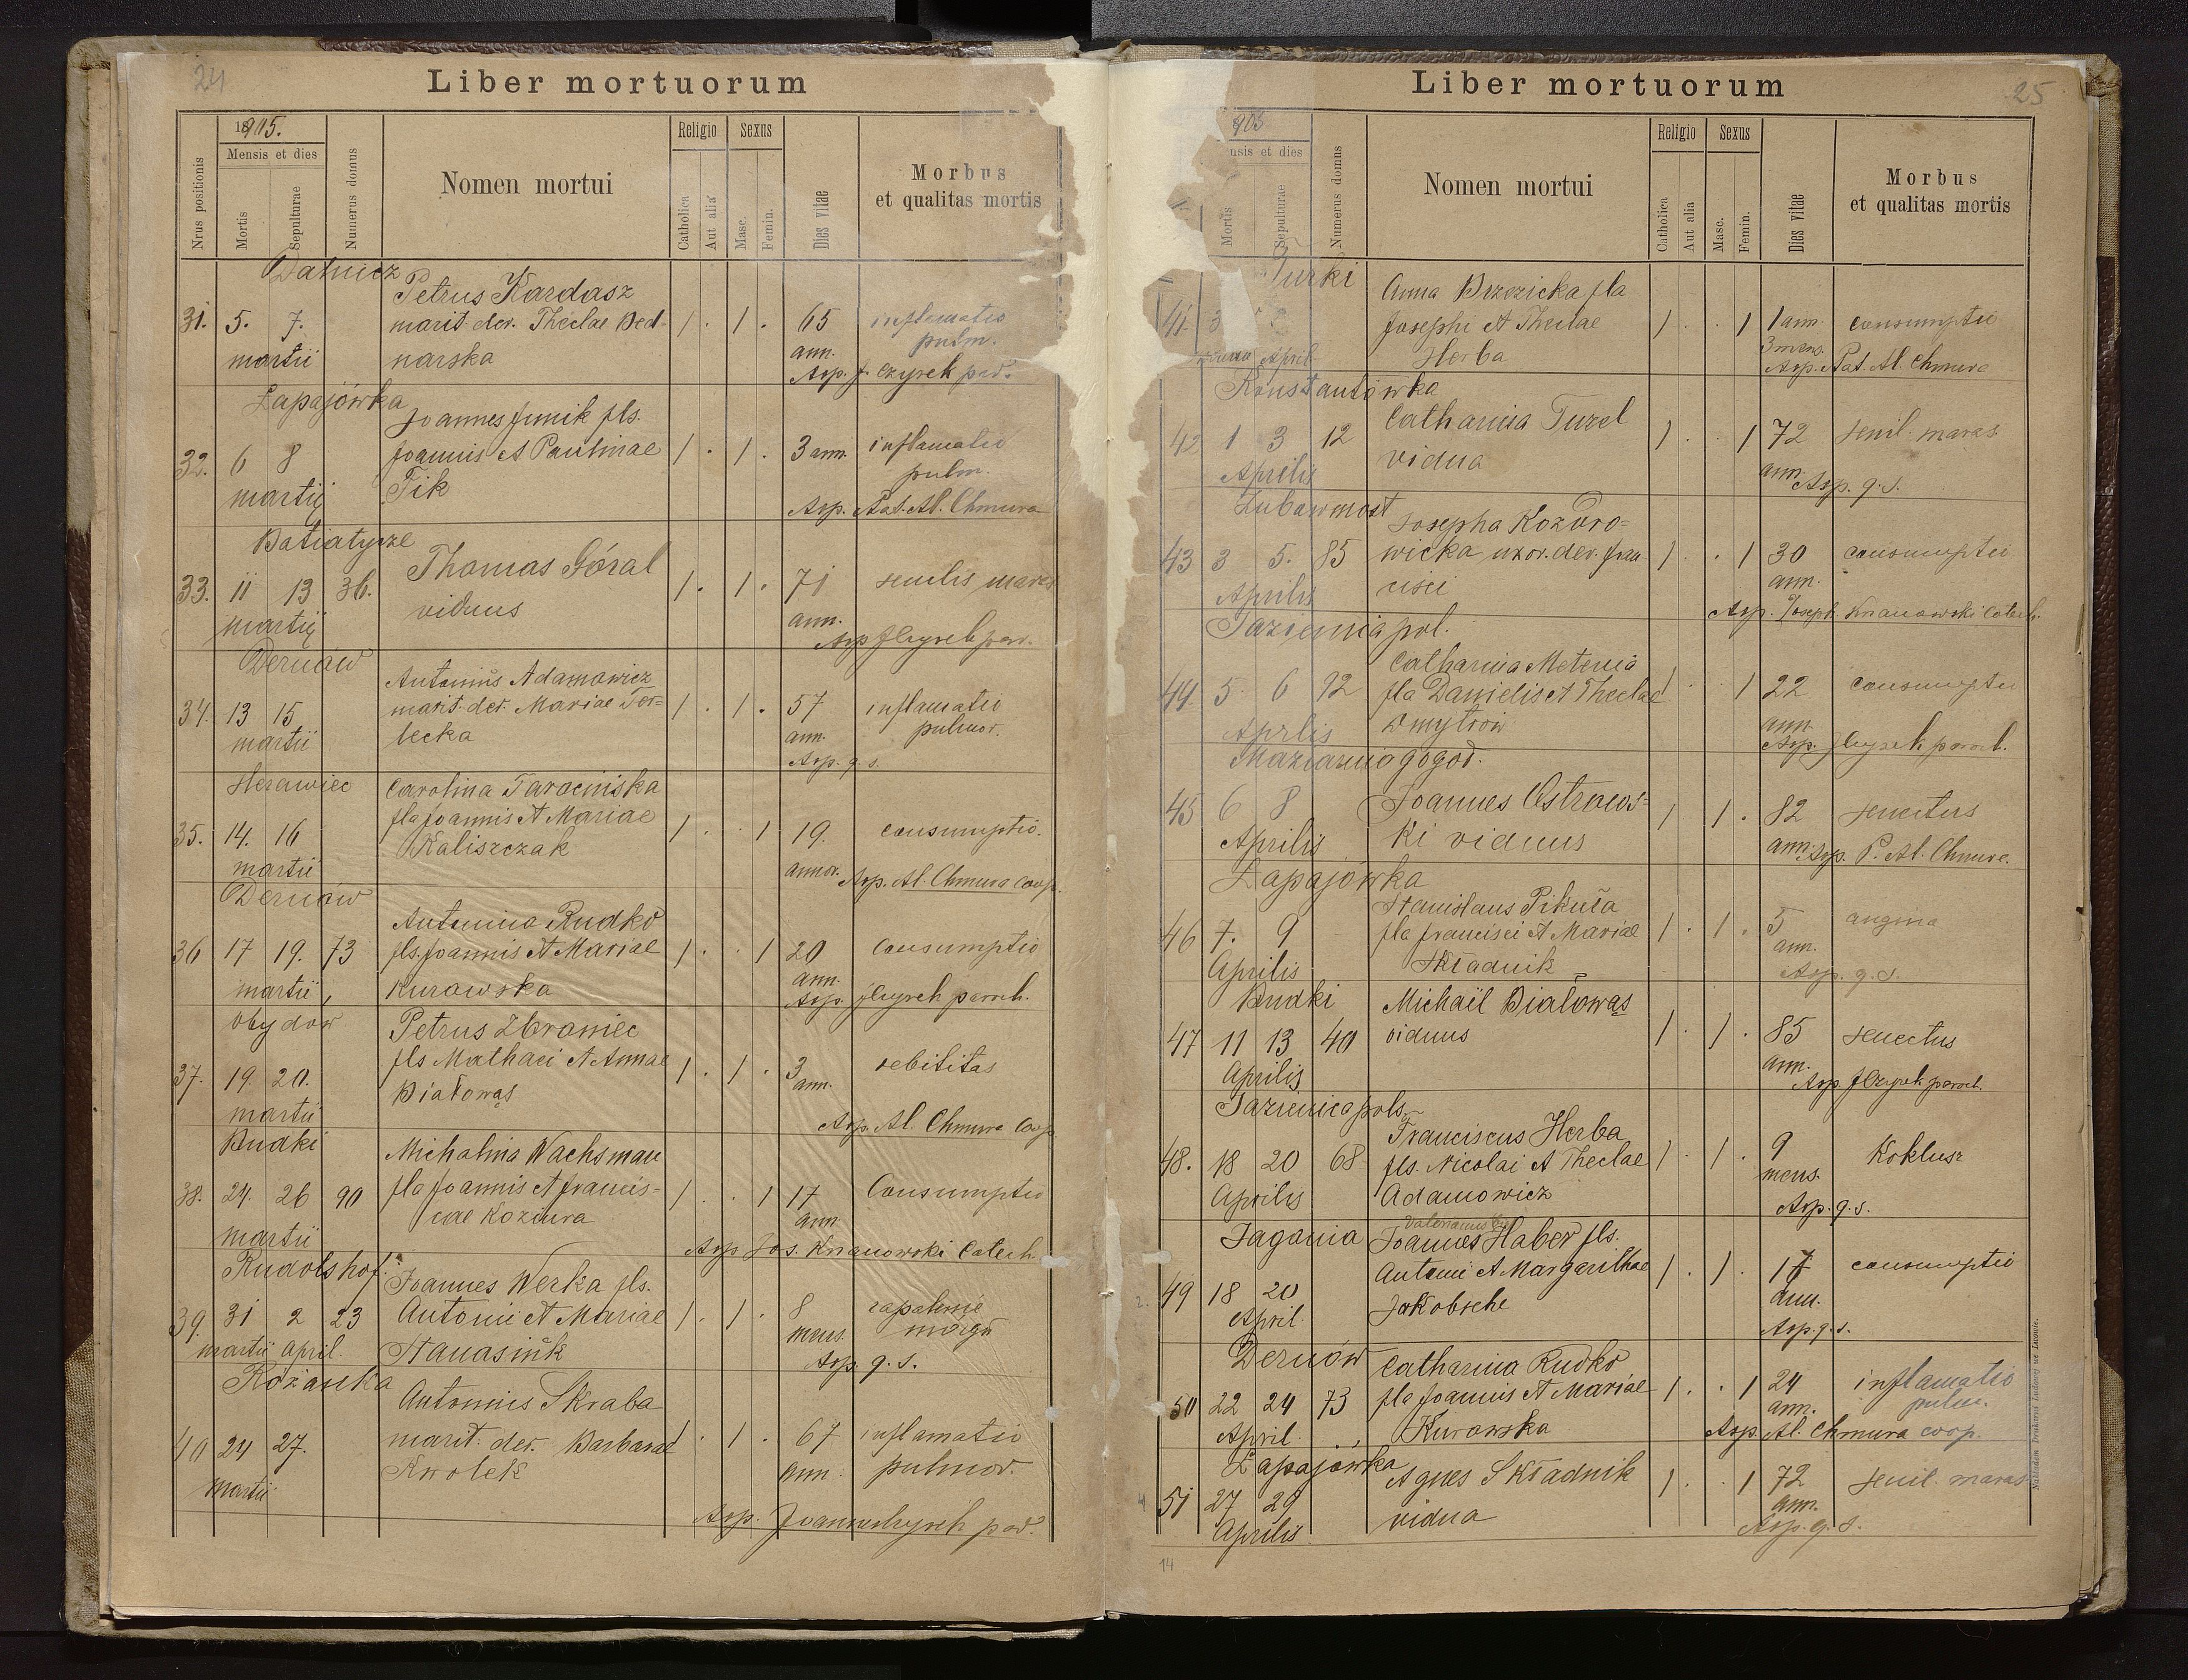 24
Liber mortuorum
1905.
Nrus positionis
Mensis et dies
Mortis
Sepulturae
Numerus domus
Nomen mortui
Religio
Catholica
Aut alia
Sexus
Masc.
Femin.
Dies vitae
Morbus
et qualitas mortis
Petrus Kardasz
31. 5. 7. marit. der. Theclae Bed= 1 . 1 . 65 inflamatio
pulm.
martii narska ann.
Asp. J. Czyrek
Łapajówka
Joannes Junik fls.
32. 6 8 Joannis et Paulinae 1 . 1 . 3 ann. inflamatio
pulm.
martii Fik
Asp. Pat. Al. Chmura
Batiatycze
Thomas Góral
33. 11 13 36. 1 . 1 . 71 senilis maras
viduus
martii ann.
Asp JCzyrek par.
Dernów
Antonius Adamowicz
34. 13 15 marit. der. Mariae Tor= 1 . 1 . 57 inflamatio
martii lecka ann. pulmor.
Asp. q. s.
Carolina Taracińska
fla Joannis et Mariae
35. 14. 16 Kaliszczak 1 . . 1 19. consumptio.
martii annor.
Asp. Al. Chmura coop.
Dernów
Antonina Rudko
36 17 19. 73 fls. Joannis et Mariae 1 . . 1 20 consumptio
martii, Kurowska ann.
Asp. JCzyrek paroch.
Obydow
Petrus Zbraniec
fls Mathaei et Annae
37. 19. 20. Białowąs 1 . 1 . 3 ann. debilitas
martii
Asp. Al. Chmura Coop
Budki
Michalina Wachsman
fla Joannis et Francis=
38. 24. 26 90 cae Koziura 1 . . 1 17 Consumptio
martii ann
Asp Jos. Knanowski Catech.
Rudolshof.
Joannes Werka fls.
39. 31 2 23 Antonii et Mariae 1 . 1 . 8 zapalenie
mens. mózgu
martii april. Stanasiuk
Asp. q. s.
Różanka
Antonius Skraba
40 24 27. marit. der. Barbarae 1 . 1 . 67 inflamatio
Kwolek ann. pulmor.
martii
Asp. Joannes Czyrek
25
Liber mortuorum
905
nsis et dies
Mortis
Sepulturae
Numerus domus
Nomen mortui
Religio
Catholica
Aut alia
Sexus
Masc.
Femin.
Dies vitae
Morbus
et qualitas mortis
Turki
Anna Brzezicka fla
41. 3 Josephi et Theclae 1 . . 1 1 ann. consumptio
3 mens.
April. Herba
Asp. Pat. Al. Chmura
Konstantówka
Catharina Turel
42 1 3 12 1 . . 1 72 senil. maras
vidua
Aprilis ann.
Asp. q. s.
Josepha Kozoro=
43 3 5. 85 wicka uxor. der. Fran 1 . . 1 30 consumptio
cisci ann.
Aprilis
Asp. Joseph. Knanowski Catech.
Jazienica pol.
Catharina Metenia
44. 5 6 92 fla Danielis et Theclae 1 . . 1 22 consumptio
Dmytrów ann.
Aprlis
Asp. JCzyrek paroch.
Maziarnia gogod.
45 6 8 Joannes Ostrows= 1 . 1 . 82 senectus
Aprilis ki viduus ann.
Asp. P. Al. Chmura.
Łapajówka
Stanislaus Pikuła
46 7. 9 fla Francisci et Mariae 1 . 1 . 5 angina
ann.
Aprilis Składnik
Asp. q. s.
Budki
Michaił Białowąs
47 11 13 40 viduus 1 . 1 . 85 senectus
Aprilis ann.
Asp JCzyrek paroch.
Jazienica pols.
Franciscus Herba
48. 18 20 68 fls. Nicolai et Theclae 1 . 1 . 9 Koklusz
mens.
Aprilis Adamowicz
Asp. q. s.
Jagonia
Joannes Haber fls.
Antoni et Margarithae
49 18 20 Jakobsche 1 . 1 . 17 consumptio
April. ann.
Asp. q. s.
Dernów
Catharina Rudko
50 22 24 73 fla Joannis et Mariae 1 . . 1 24 inflamatio
ann. pulm.
April. Kurowska
Asp. Al. Chmura coop.
Łapajówka
Agnes Składnik
51 27 29 vidua 1 . . 1 72 senil maras
ann.
Aprilis
Asp. q. s.
14